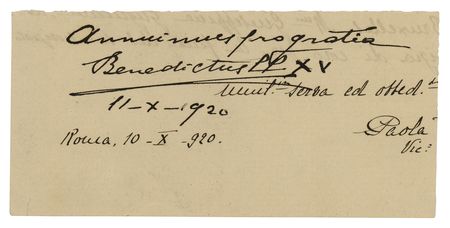 Annuimus pro gratia
Benedictus PP XV
Umil.ma serva ed obbed.
11-X-1920
Paola
Roma, 10-X-920.
Vic: